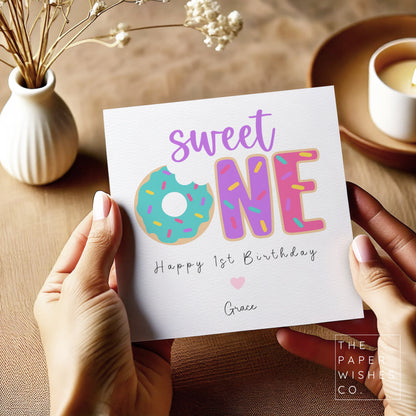 sweet
ONE
Happy 1st Birthday
Grace
THE
PAPER
WISHES
CO.